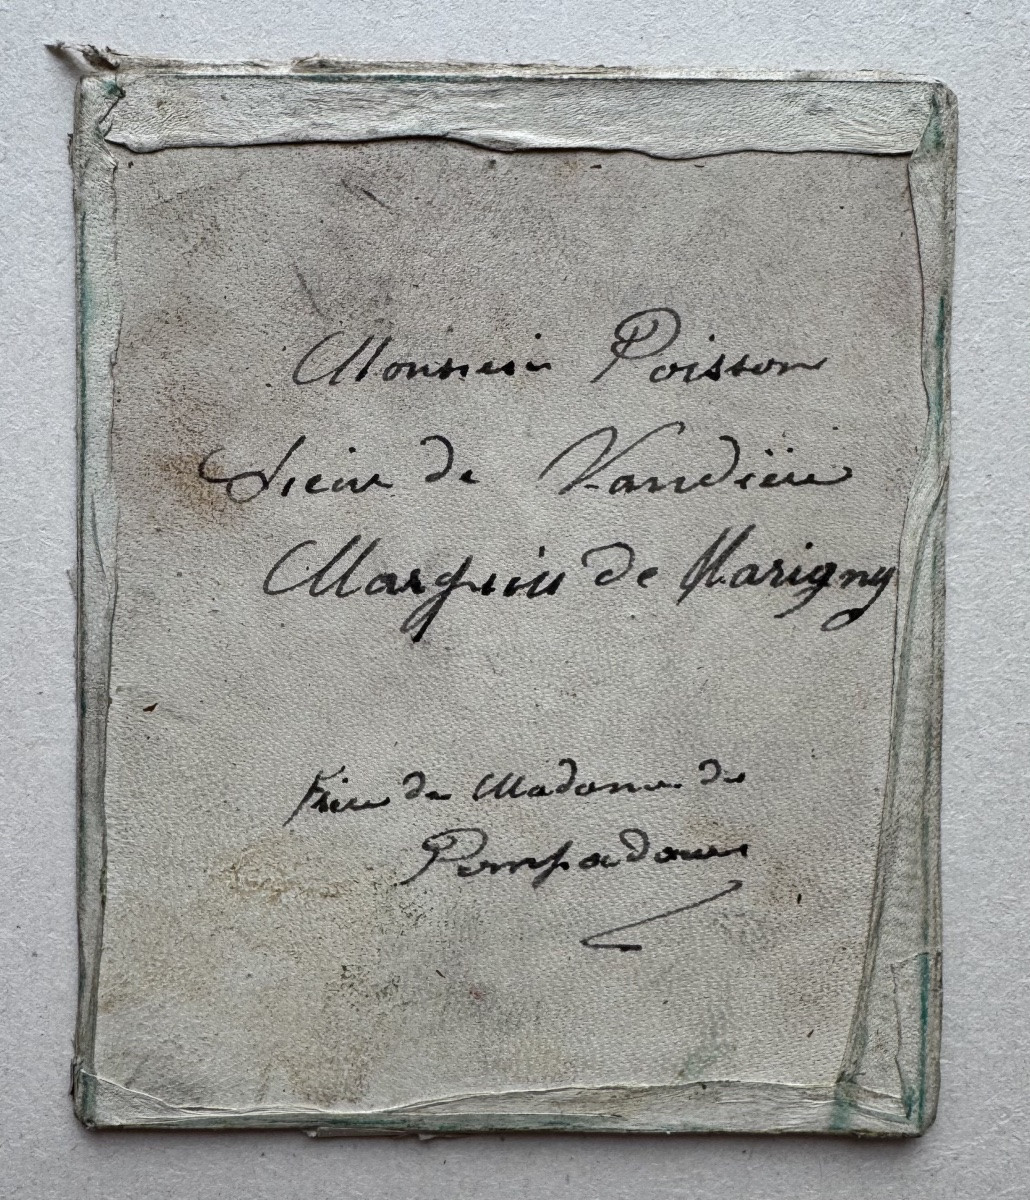 Monsieur Poisson
Sieur de Vandïeu
Marquis de Marigny
Frère de Madame de
Pompadour